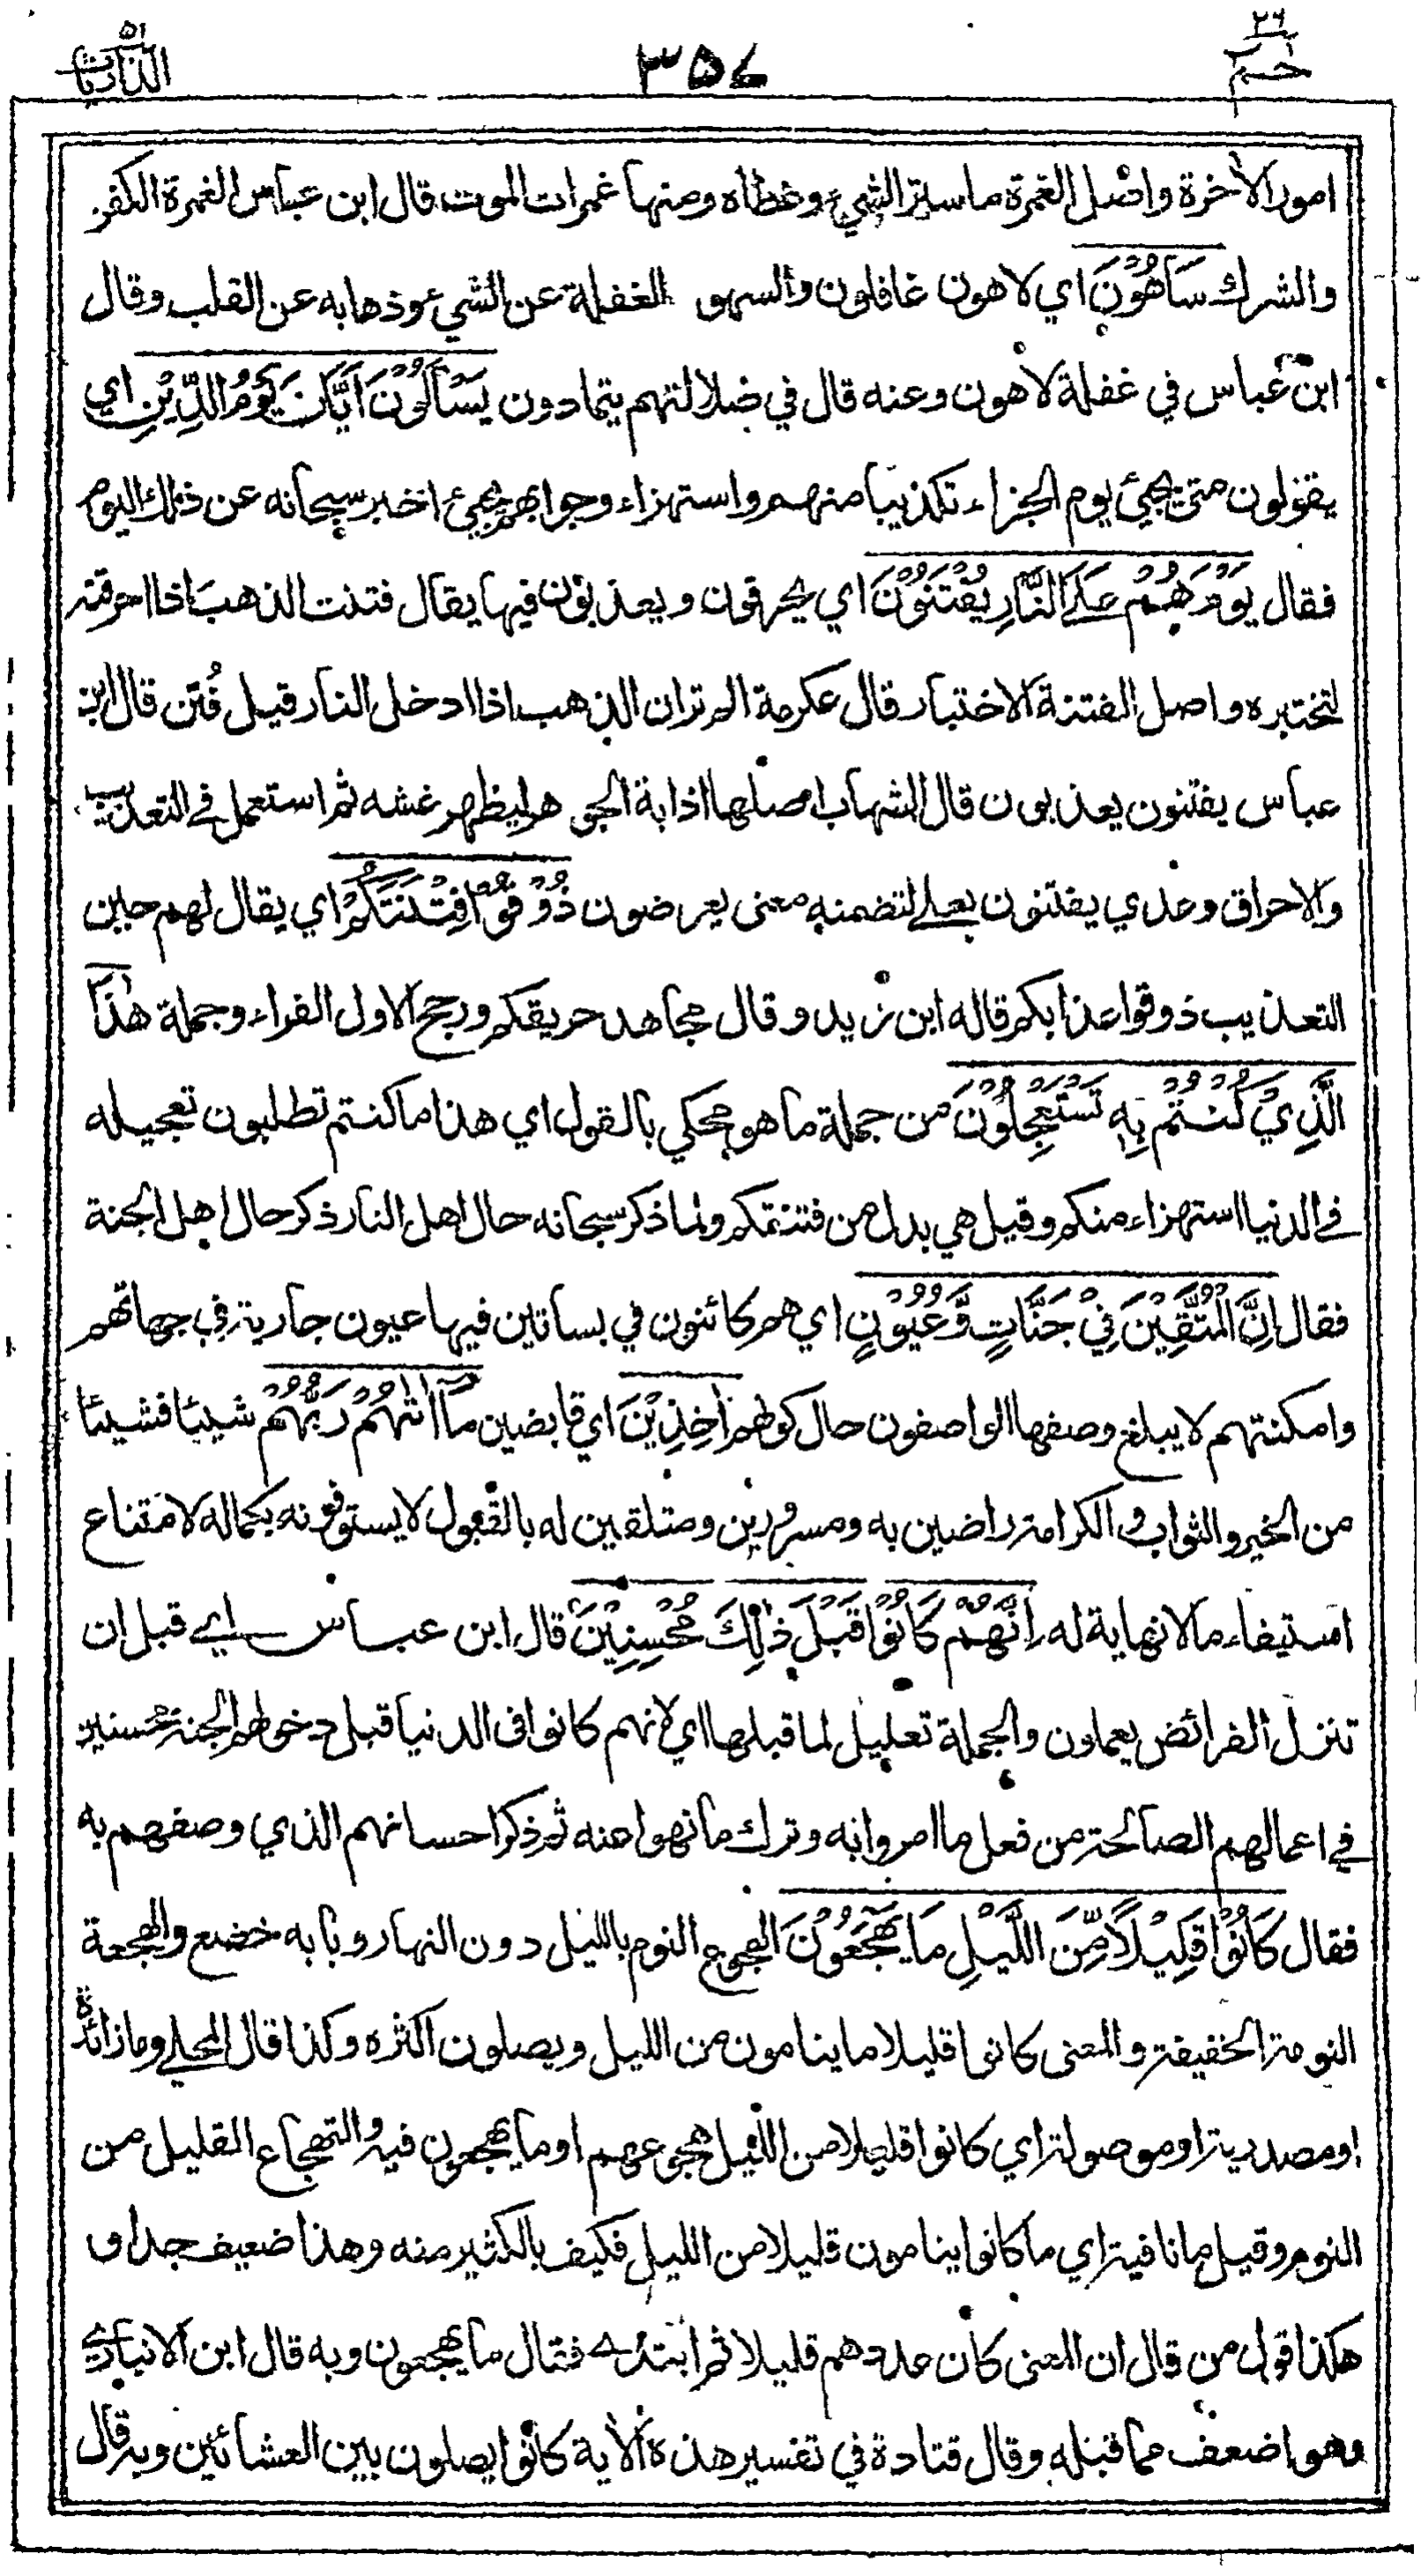 ٢٦
حـم
٣٥٧
٥١
الذاريات
امور الآخرة واصل الغمرة ما ستر الشيء وغطاه ومنها غمرات الموت قال ابن عباس الغمرة الكفر
والشرك سَاهُوْنَ اي لاهون غافلون والسهو الغفلة عن الشيء وذهابه عن القلب وقال
ابن عباس في غفلة لاهون وعنه قال في ضلالتهم يتمادون يَسْأَلُوْنَ اَيَّانَ يَوْمُ الدِّيْنِ اي
يقولون متى يجيئ يوم الجزاء تكذيبا منهم واستهزاء وجوابهم يجيئ اخبر سبحانه عن ذلك اليوم
فقال يَوْمَ هُمْ عَلَى النَّارِ يُفْتَنُوْنَ اي يحرقون ويعذبون فيها يقال فتنت الذهب اذا احرقته
لتختبره واصل الفتنة الاختبار قال عكرمة الم تر ان الذهب اذا ادخل النار قيل فُتن قال ابن
عباس يفتنون يعذبون قال الشهاب اصلها اذابة الجوهر ليظهر غشه ثم استعمل في التعذيب
والاحراق وعدي يفتنون بعلى لتضمنه معنى يعرضون ذُوْقُوْا فِتْنَتَكُمْ اي يقال لهم حين
التعذيب ذوقوا عذابكم قاله ابن زيد وقال مجاهد حريقكم ورجح الاول الفراء وجملة هٰذَا
الَّذِيْ كُنْتُمْ بِهٖ تَسْتَعْجِلُوْنَ من جملة ما هو محكي بالقول اي هذا ما كنتم تطلبون تعجيله
في الدنيا استهزاء منكم وقيل هي بدل من فتنتكم ولما ذكر سبحانه حال اهل النار ذكر حال اهل الجنة
فقال اِنَّ الْمُتَّقِيْنَ فِيْ جَنَّاتٍ وَّعُيُوْنٍ اي هم كائنون في بساتين فيها عيون جارية في جهاتهم
وامكنتهم لا يبلغ وصفها الواصفون حال كونهم اٰخِذِيْنَ اي قابضين مَآ اٰتٰهُمْ رَبُّهُمْ شيئا فشيئا
من الخير والثواب والكرامة راضين به ومسرورين ومتلقين له بالقبول لا يستوفونه بكماله لامتناع
استيفاء ما لا نهاية له اِنَّهُمْ كَانُوْا قَبْلَ ذٰلِكَ مُحْسِنِيْنَ قال ابن عباس اي قبل ان
تنزل الفرائض يعملون والجملة تعليل لما قبلها اي لانهم كانوا في الدنيا قبل دخولهم الجنة محسنين
في اعمالهم الصالحة من فعل ما امروا به وترك ما نهوا عنه ثم ذكر احسانهم الذي وصفهم به
فقال كَانُوْا قَلِيْلًا مِّنَ اللَّيْلِ مَا يَهْجَعُوْنَ الهجوع النوم بالليل دون النهار وبابه خضع والهجعة
النومة الخفيفة والمعنى كانوا قليلا ما ينامون من الليل ويصلون اكثره وكذا قال المحلي وما زائدة
او مصدرية او موصولة اي كانوا قليلا من الليل هجوعهم او ما يهجعون فيه والتهجاع القليل من
النوم وقيل ما نافية اي ما كانوا ينامون قليلا من الليل فكيف بالكثير منه وهذا ضعيف جدا و
هكذا قول من قال ان المعنى كان عددهم قليلا ثم ابتدئ فقال ما يهجعون وبه قال ابن الانباري
وهو اضعف مما قبله وقال قتادة في تفسير هذه الآية كانوا يصلون بين العشائين وبه قال